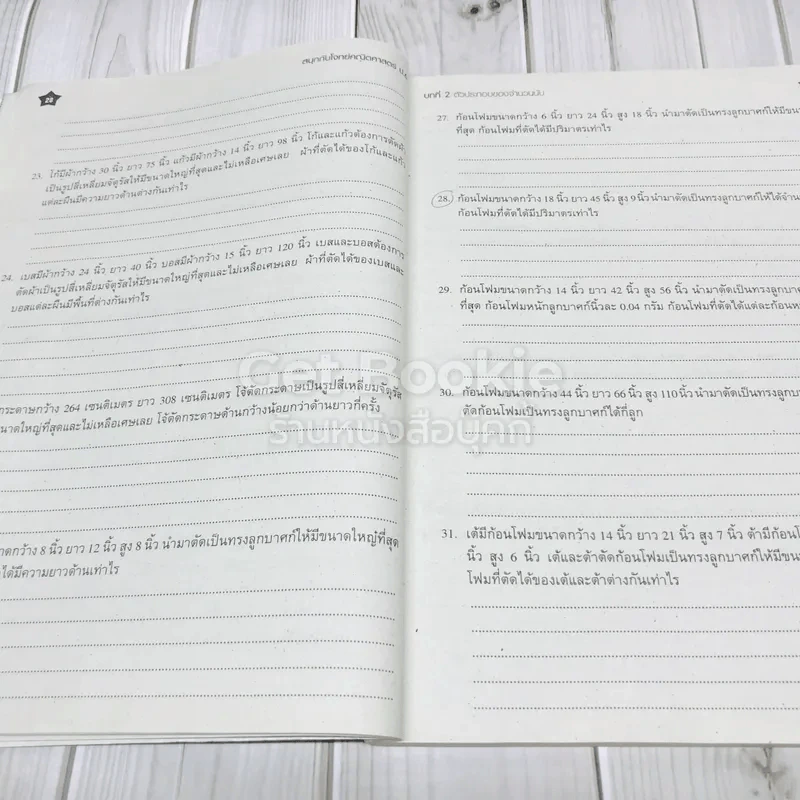 22
สนุกกับโจทย์คณิตศาสตร์ ป.
23. โก้มีผ้ากว้าง 30 นิ้ว ยาว 75 นิ้ว แก้วมีผ้ากว้าง 14 นิ้ว ยาว 98 นิ้ว โก้และแก้วต้องการตัดผ้า
เป็นรูปสี่เหลี่ยมจัตุรัสให้มีขนาดใหญ่ที่สุดและไม่เหลือเศษเลย ผ้าที่ตัดได้ของโก้และแก้ว
แต่ละผืนมีความยาวด้านต่างกันเท่าไร
24. เบสมีผ้ากว้าง 24 นิ้ว ยาว 40 นิ้ว บอสมีผ้ากว้าง 15 นิ้ว ยาว 120 นิ้ว เบสและบอสต้องการ
ตัดผ้าเป็นรูปสี่เหลี่ยมจัตุรัสให้มีขนาดใหญ่ที่สุดและไม่เหลือเศษเลย ผ้าที่ตัดได้ของเบสและ
บอสแต่ละผืนมีพื้นที่ต่างกันเท่าไร
กระดาษกว้าง 264 เซนติเมตร ยาว 308 เซนติเมตร โจ้ตัดกระดาษเป็นรูปสี่เหลี่ยมจัตุรัส
ขนาดใหญ่ที่สุดและไม่เหลือเศษเลย โจ้ตัดกระดาษด้านกว้างน้อยกว่าด้านยาวกี่ครั้ง
กว้าง 8 นิ้ว ยาว 12 นิ้ว สูง 8 นิ้ว นำมาตัดเป็นทรงลูกบาศก์ให้มีขนาดใหญ่ที่สุด
ได้มีความยาวด้านเท่าไร
บทที่ 2 ตัวประกอบของจำนวนนับ
27. ก้อนโฟมขนาดกว้าง 6 นิ้ว ยาว 24 นิ้ว สูง 18 นิ้ว นำมาตัดเป็นทรงลูกบาศก์ให้มีขนา
ที่สุด ก้อนโฟมที่ตัดได้มีปริมาตรเท่าไร
28. ก้อนโฟมขนาดกว้าง 18 นิ้ว ยาว 45 นิ้ว สูง 9 นิ้ว นำมาตัดเป็นทรงลูกบาศก์ให้ได้จำน
ก้อนโฟมที่ตัดได้มีปริมาตรเท่าไร
29. ก้อนโฟมขนาดกว้าง 14 นิ้ว ยาว 42 นิ้ว สูง 56 นิ้ว นำมาตัดเป็นทรงลูกบาศก์ให้มีขนาด
ที่สุด ก้อนโฟมหนักลูกบาศก์นิ้วละ 0.04 กรัม ก้อนโฟมที่ตัดได้แต่ละก้อนห
Get Bookie
ร้านหนังสือบุคกี้
30. ก้อนโฟมขนาดกว้าง 44 นิ้ว ยาว 66 นิ้ว สูง 110 นิ้ว นำมาตัดเป็นทรงลูกบา
ตัดก้อนโฟมเป็นทรงลูกบาศก์ได้กี่ลูก
31. เต้มีก้อนโฟมขนาดกว้าง 14 นิ้ว ยาว 21 นิ้ว สูง 7 นิ้ว ต้ามีก้อนโ
นิ้ว สูง 6 นิ้ว เต้และต้าตัดก้อนโฟมเป็นทรงลูกบาศก์ให้มีขน
โฟมที่ตัดได้ของเต้และต้าต่างกันเท่าไร